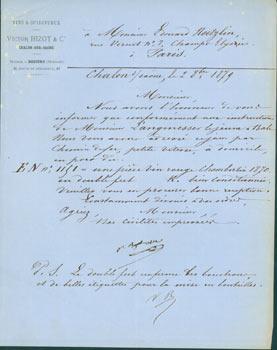 VINS & SPIRITUEUX
VICTOR BIZOT & Cie
CHALON-SUR-SAONE
à Monsieur Edouard
rue Vernet no 3, Champs Elysées
à Paris.
Chalon s/saone, le 2 8bre 1879
Monsieur
Nous avons l'honneur de vous
informer que conformément aux instructions
de Monsieur Languinesse
Nous vous avons adressé ce jour par
Chemin de fer, petite vitesse, à domicile,
en port dû.
E N no 1151 - une pièce vin rouge Chambertin 1870,
en double fût bien conditionnée,
Veuillez vous en procurer bonne réception.
Constamment dévoués à vos ordres,
Agréez, Monsieur
Nos civilités empressées
P. S. Le double fût renferme les bouchons
et de belles étiquettes pour la mise en bouteilles.
V. B.